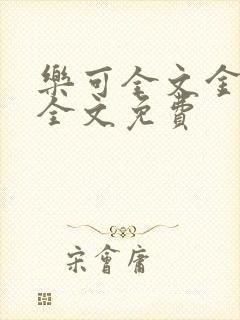 樂可全文全
全文免費
宋會庸